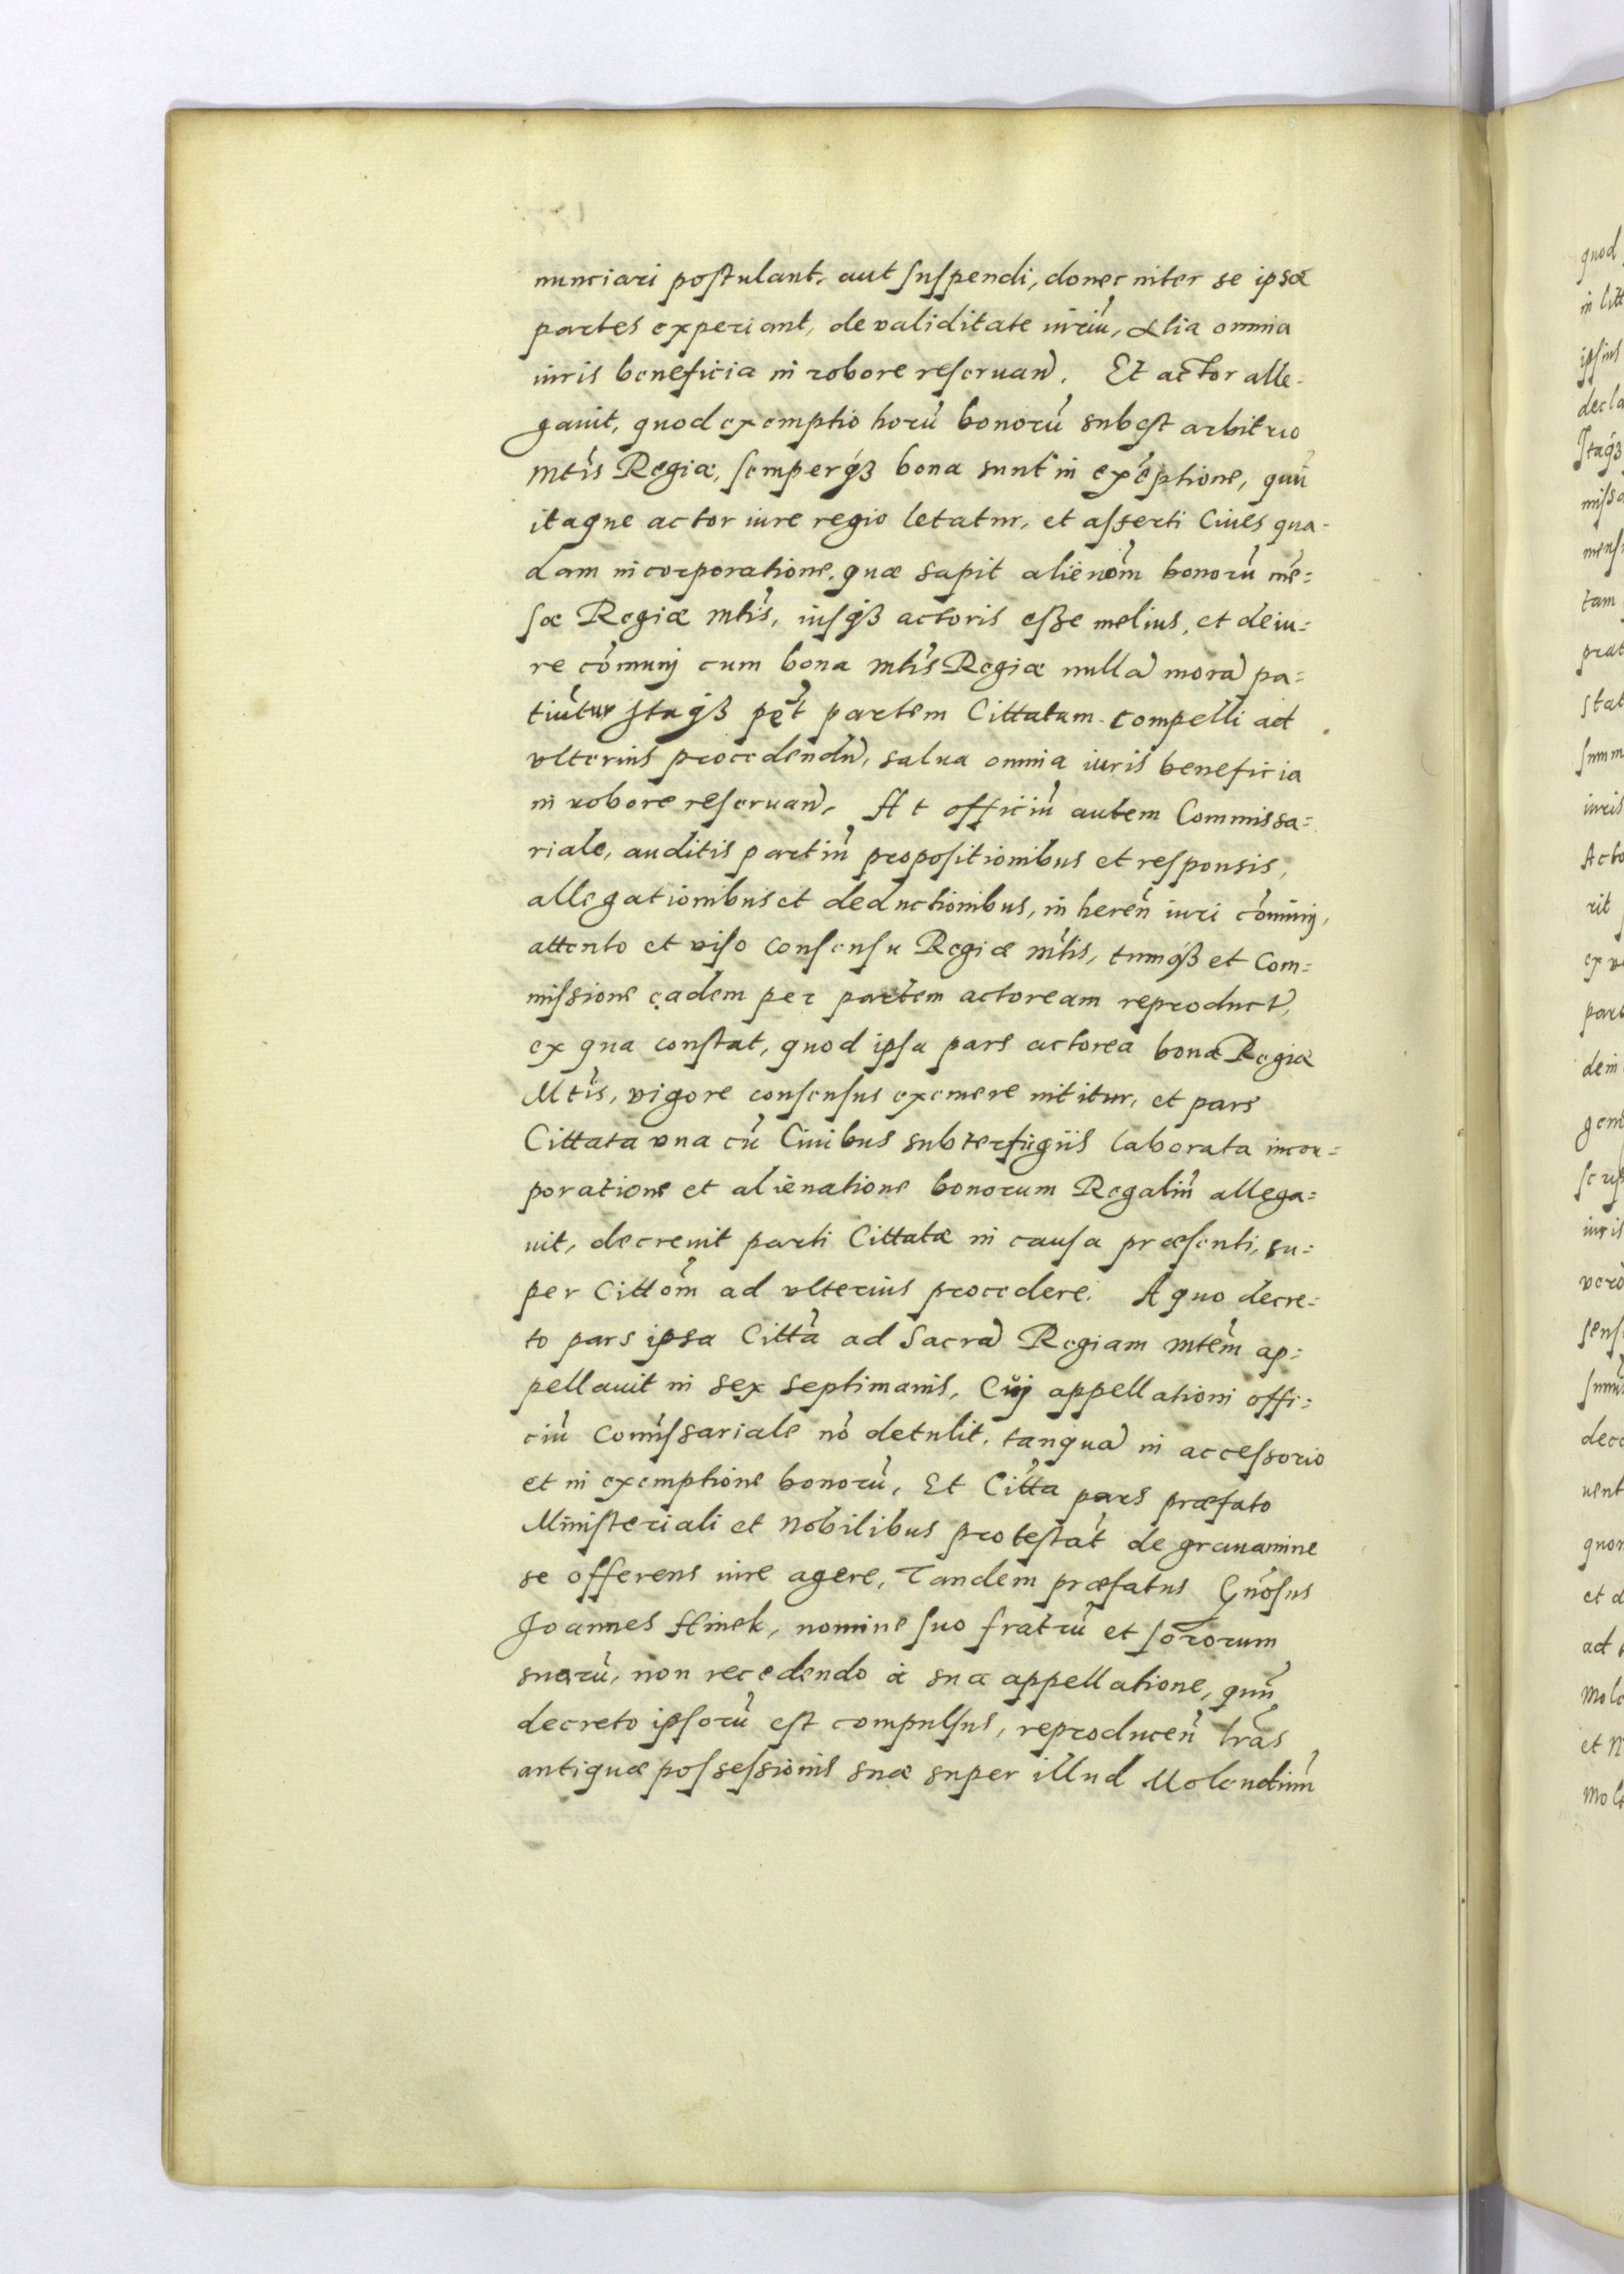 nunciari postulant, aut suspendi, donec inter se ipsæ
partes experiant, de validitate iuriũ, alia omnia
iuris beneficia in robore reseruan̄. Et actor alle=
gauit, quod exemptio horũ bonorũ subest arbitrio
Mtis Regiæ, semperqꝫ bona sunt in exẽptione, quũ
itaque actor iure regio letatur, et asserti Ciues qua=
dam incorporatione, quæ sapit alienõm bonorũ mẽ=
sæ Regiæ Mtis, iusqꝫ actoris esse melius, et de iu=
re cõmunj cum bona Mtis Regiæ nullã morã pa=
tiũtur Itaqꝫ pet̃ partem Cittatam compelli ad
vlterius procedendũ, salua omnia iuris beneficia
in robore reseruan̄. At officiũ autem Commissa=
riale, auditis partiũ propositionibus et responsis,
allegationibus et deductionibus, in herẽn iuri cõmunj,
attento et viso consensu Regiæ Mtis, tumqꝫ et Com=
missione eadem per partem actoream reproduct,
ex qua constat, quod ipsa pars actorea bona Regiæ
Mtis, vigore consensus exemere nititur, et pars
Cittata vna cũ Ciuibus subterfugiis laborata incor=
poratione et alienatione bonorum Regaliũ allega=
uit, decreuit parti Cittatæ in causa præsenti, su=
per Cittõm ad vlterius procedere. A quo decre=
to pars ipsa Citta ad Sacrã Regiam Mtem ap=
pellauit in sex septimanis, Cuj appellationi offi=
ciũ Comissariale nõ detulit, tanquã in accessorio
et in exemptione bonorũ, Et Citta pars præfato
Ministeriali et Nobilibus protestat̃ de grauamine
se offerens iure agere, Tandem præfatus Gnõsus
Joannes Hinek, nomine suo fratrũ et sororum
suarũ, non recedendo à sua appellatione, quũ
decreto ipsorũ est compulsus, reproducẽn lras
antiquæ possessionis suæ super illud Molendinũ